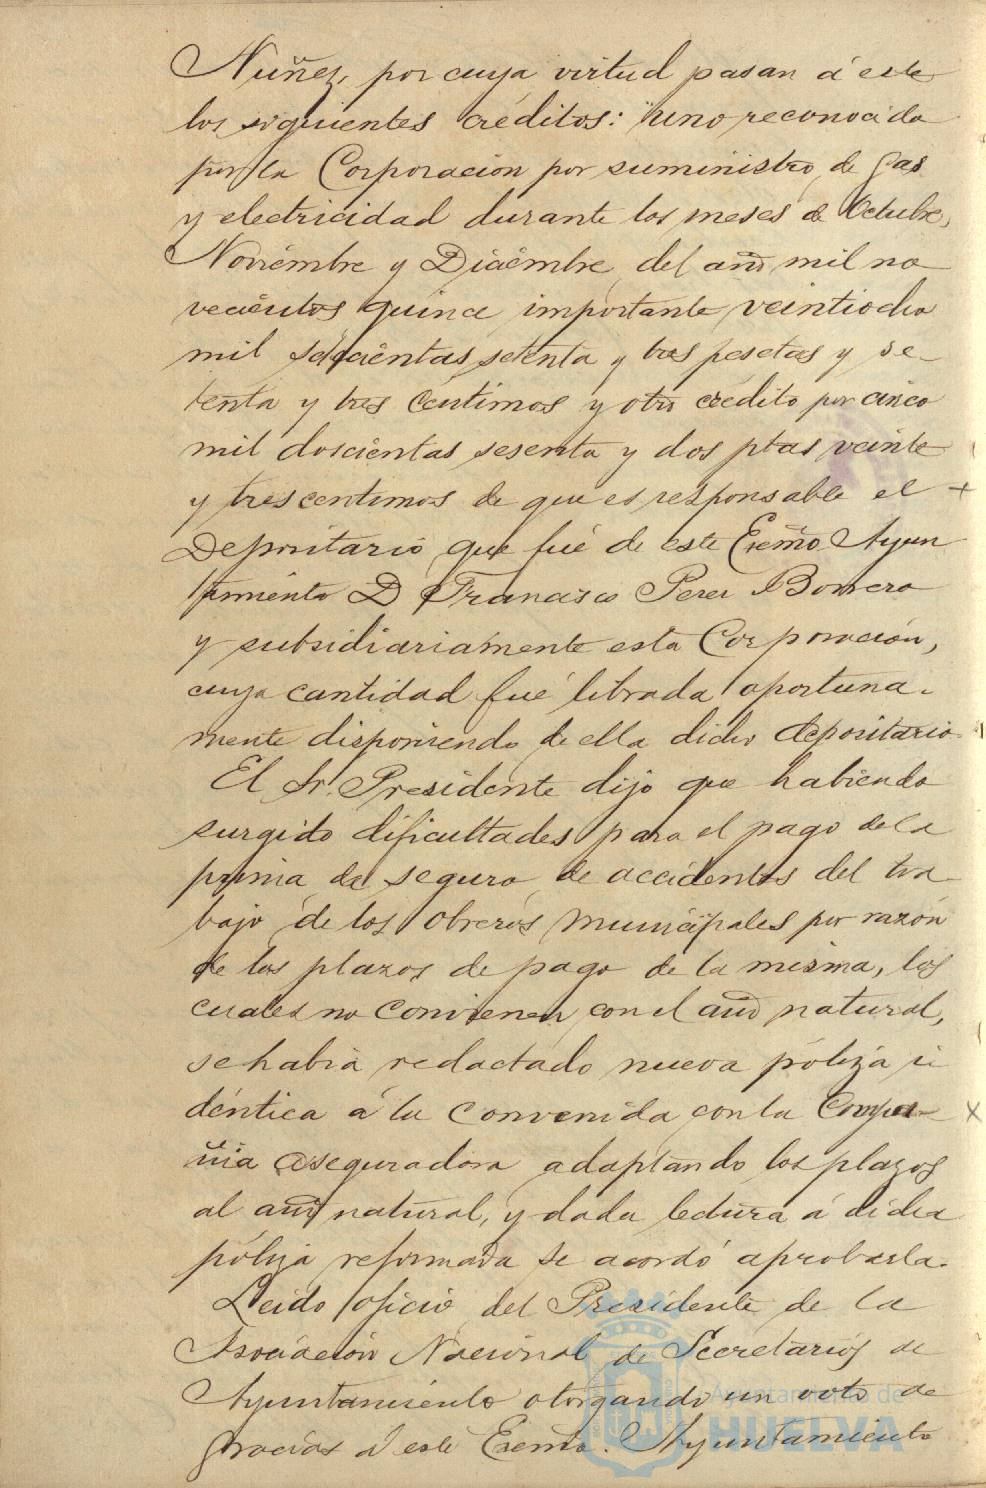 Nuñez, por cuya virtud pasan á este
los siguientes créditos: uno reconocido
por la Corporacion por suministro de gas
y electricidad durante los meses de Octubre,
Noviembre y Diciembre del año mil no
vecientos quince importante veintiocho
mil seiscientas setenta y tres pesetas y se-
tenta y tres centimos y otro credito por cinco
mil doscientas sesenta y dos ptas veinte
y tres centimos de que es responsable el
Depositario que fué de este Excmo Ayun
tamiento D Francisco Perez Romero
y subsidiariamente esta Corporación,
cuya cantidad fué librada oportuna-
mente disponiendo de ella dicho depositario.
El Sr. Presidente dijo que habiendo
surgido dificultades para el pago de la
prima de seguro de accidentes del tra-
bajo de los obreros municipales por razón
de los plazos de pago de la misma, los
cuales no convienen con el año natural,
se habia redactado nueva póliza i
déntica á la convenida con la Compa-
ñia aseguradora adaptando los plazos
al año natural, y dada lectura á dicha
póliza reformada se acordó aprobarla.
Leido oficio del Presidente de la
Asociación Nacional de Secretarios de
Ayuntamiento otorgando un voto de
gracias á este Excmo. Ayuntamiento
Ayuntamiento de
HUELVA